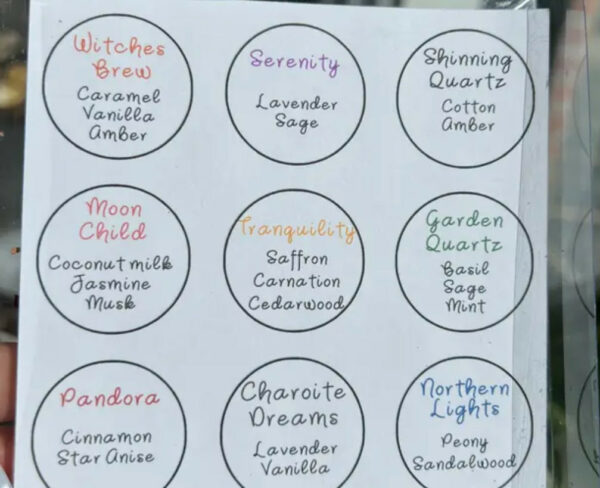 Witches
Brew
Caramel
Vanilla
Amber
Serenity
Lavender
Sage
Shinning
Quartz
Cotton
Amber
Moon
Child
Coconut milk
Jasmine
Musk
Tranquility
Saffron
Carnation
Cedarwood
Garden
Quartz
Basil
Sage
Mint
Pandora
Cinnamon
Star Anise
Charoite
Dreams
Lavender
Vanilla
Northern
Lights
Peony
Sandalwood